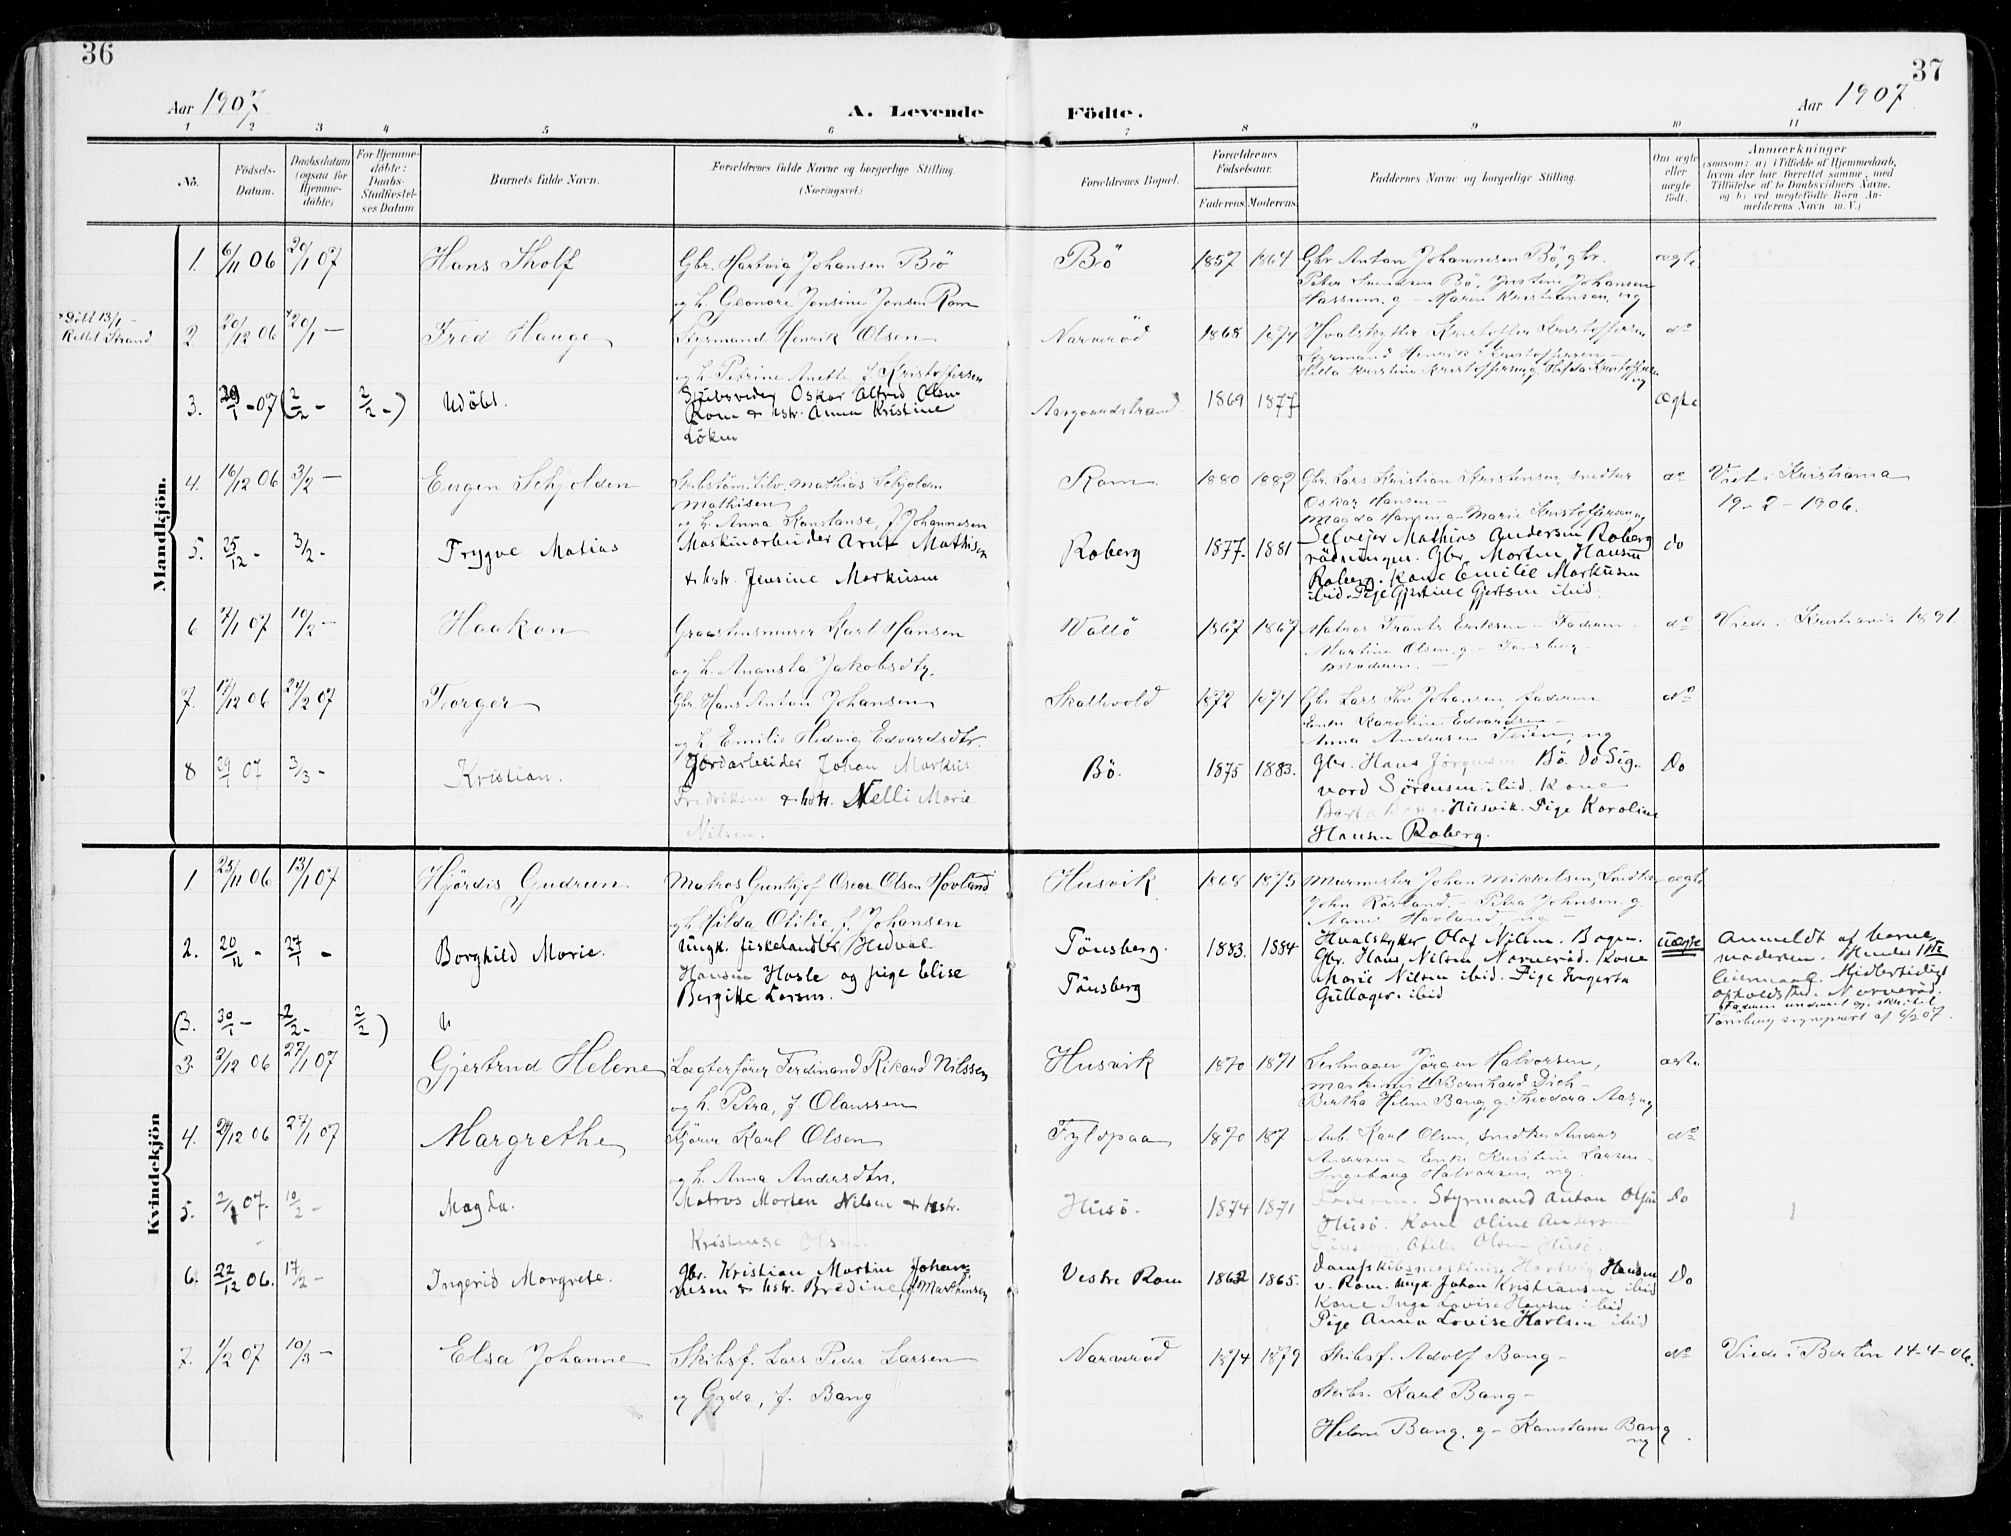 36
37
Aar 1907
A. Levende
Födte.
Aar 1907
1 2 3 4 5 6 7 8 9 10 11
No.
Födsels-Datum.
Daabsdatum (ogsaa for Hjemme-döbte)
For Hjemme-döbte: Daabs-Stadfæstelses Datum
Barnets fulde Navn.
Forældrenes fulde Navne og borgerlige Stilling. (Næringsvei.)
Forældrenes Bopæl.
Forældrenes Födselsaar.
Faderens
Moderens
Faddernes Navne og borgerlige Stilling.
Om ægte eller uægte födt.
Anmærkninger
(saasom: a) i Tilfælde af Hjemmedaab, hvem der har forrettet samme, med Tilföielse af to Daabsvidners Navne, og b) ved uægtefödte Börn Anmelderens Navn m. V.)
Mandkjön.
1. 6/11 06 20/1 07 Hans Tholf
Gbr. Hartvig Johansen Bö
og h. Elenore Jensine Jensen Rom
Bö 1857 1864
Gbr. Anton Johannesen Bö, gbr.
Peter Svendsen Bö, Justine Johansen
Hassum, g – Maren Kristiansen, ug
ægte
2 20/12 06 20/1 – Fred Hauge
Styrmand Henrik Olsen
og h. Petrine Anette, f. Kristoffersen
Narveröd 1868 1874
Hvalskytter Kristoffer Kristoffersen
Styrmand Henrik Kristoffersen –
Hilda Kristine Kristoffersen g, Hilda Kristoffersen ug
do
3. 07 (2/2 – 2/2 –) Udöbt.
Oskar Alfred Olsen
Rom & hstr. Anna Kristine
Löken
Aasgaardstrand 1869 1877
Ægte
4. 16/12 06 3/2 – Eugen Schjolden
Mathias Schjolden
Mathisen
og h. Anna Konstanse, f. Johannesen
Rom 1880 1882
Gbr. Lars Kristian Kristensen, snedker
Oskar Hansen –
Magda Hansen, g – Marie Kristoffersen ug
do
Viet i Kristiania
19–2–1906.
5. 25/12 – 3/2 – Trygve Matias
Maskinarbeider Arnt Mathisen
& hstr. Jensine Markusen
Roberg 1877. 1881
Selveier Mathias Andersen Roberg
rödningen. Gbr. Morten Hansen
Roberg. Kone Emilie Markusen
ibid. Pige Gjertine Gjertsen ibid.
do
6 7/1 07 10/2 – Haakon
Graastensmurer Karl Hansen
og h. Augusta Jakobsdtr.
Vallö 1867 1867
Matros Frants Eriksen – Faderen –
Martine Olsen, g – Tönsberg –
Moderen. –
do
Viede i Kristiania 1891
7. 17/12 06 24/2 07 Torger
Gbr. Hans Anton Johansen
og h. Emilie Hedvig Edvardsdtr.
Skallevold 1872 1874
Gbr. Lars Johansen, faderen
Enke Karoline Edvardsen –
Anna Andersen Teien, ug
do
8 29/1 07 3/3 – Kristian.
Jordarbeider Johan Markus
Fredriksen & hstr. Nelli Marie
Nilsen.
Bö. 1875 1883.
Gbr. Hans Jörgensen Bö. Do Sig-
vard Sörensen ibid. Kone
Husvik. Pige Karoline
Hansen Roberg.
Do
Kvindekjön
1 25/11 06 13/1 07 Hjördis Gudrun
Matros Gunthjof Oscar Olsen Hovland
og h. Hilda Otilie, f. Johansen
Husvik 1868 1875
Murmester Johan Mikkelsen, Snedker
John – Petra Johnsen, g.
Hovland, ug. –
ægte
2. 20/11 – 27/1 – Borghild Marie.
Ungk. fiskehandler Hedval
Hansen Hasle og pige Elise
Bergitte Larsen.
Tönsberg.
Tönsberg
1883. 1884
Hvalskytter Olaf Nilsen. Bogen.
Gbr. Hans Nilsen Narveröd. Kone
Marie Nilsen ibid. Pige
Gullager. ibid
uægte
Anmeldt af barne-
moderen. Hendes 1ste
leiermaal. Midlertidigt
opholdssted. Narveröd.
(3. 30/1 – 2/2 – 2/2 ) U
3. 2/12 06 27/1 07 Gjertrud Helene
Lægterförer Ferdinand Rikard Nilssen
og h. Petra, f. Olaussen
Husvik 1870 1871
Seilmager Jörgen Halvorsen,
Maskinist Bernhard Dick –
Bertha Helene Bang, g. Theodora Aas, ug
ægte
4. 12 06 27/1 07 Margrethe
Kjörer Karl Olsen
og h. Anna Andersdtr.
Fyldpaa 1870 187
Arb. Karl Olsen, Snedker Anders
Andersen – Enke Kristine Larsen –
Ingeborg Halvorsen, ug.
do
5. 2/1 07. 10/2 – Magda.
Matros Morten Nilsen & hstr.
Olsen.
Husö. 1874 1871
Faderen. Styrmand Anton Olsen
Husö. Kone Oline Andersen
Otilie Olsen Husö.
Do
6. 22/12 06. 17/2 – Ingerid Margrete.
Gbr. Kristian Martin Johan-
nesen & hstr. Bredine, f. Marthinsen
Vestre Rom 1862 1865.
Dampskibsmaskinist Hartvig Hansen
v. Rom. Ungk. Johan Kristiansen ibid
Kone Inga Lovise Hansen ibid
Pige Anna Lovise Karlsen ibid
Do
7. 1/2 07 10/3 – Elsa Johanne
Skibsf. Lars Peder Larsen
og Gyda, f. Bang
Narveröd 1874 1879
Skibsf. Adolf Bang –
Skibs. Karl Bang –
Helene Bang, g – Konstanse Bang
ug
do
Viede i Berlin 14–4–06.